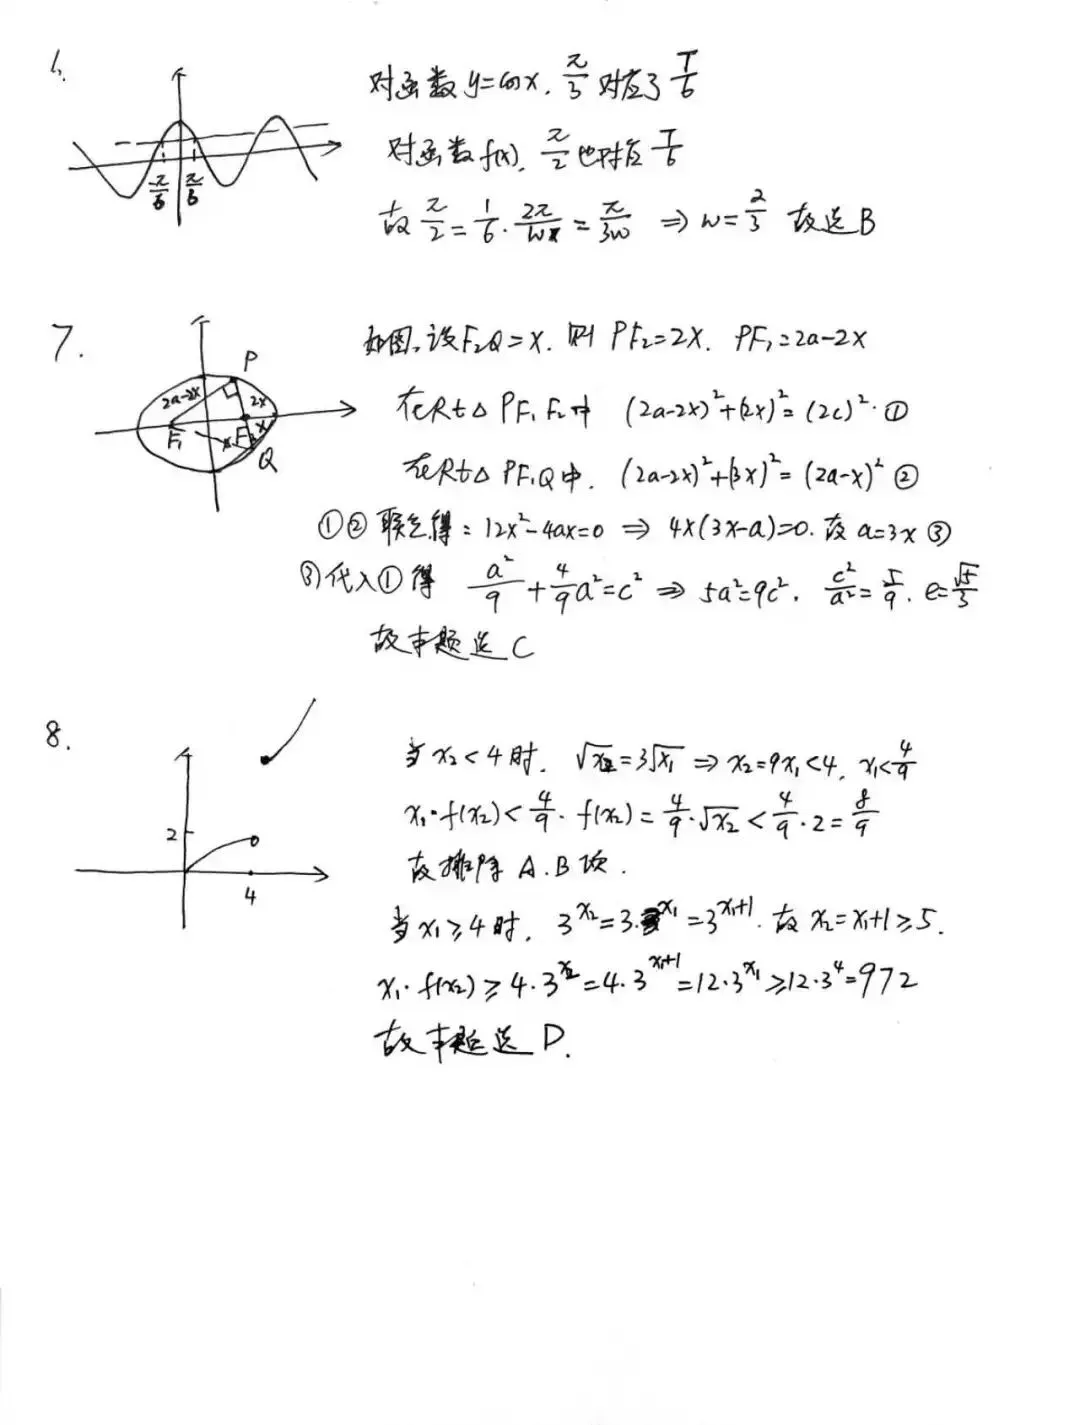 6.
对函数y=cosx. π/3 对应了 T/6
对函数f(x), π/2也对应 T/6
-π/6 π/6
故 π/2 = 1/6 · 2π/w = π/3w ⇒ w = 2/3 故选B
7.
如图,设F₂Q=x. 则 PF₂=2x. PF₁=2a-2x
P 2a-2x 2x x F₁ F₂ Q
在Rt△PF₁F₂中 (2a-2x)²+(2x)²=(2c)². ①
在Rt△PF₁Q中. (2a-2x)²+(3x)²=(2a-x)² ②
①②联立得: 12x²-4ax=0 ⇒ 4x(3x-a)=0. 故 a=3x ③
③代入①得 a²/9 + 4/9a²=c² ⇒ 5a²=9c², c²/a²=5/9. e=√5/3
故本题选C
8.
2 4
当x₂<4时. √x₂=3√x₁ ⇒ x₂=9x₁<4, x₁<4/9
x₁·f(x₂)<4/9·f(x₂)=4/9·√x₂<4/9·2=8/9
故排除 A.B项.
当x₁≥4时, 3^x₂=3·3^x₁=3^(x₁+1). 故 x₂=x₁+1≥5.
x₁·f(x₂)≥4·3^x₂=4·3^(x₁+1)=12·3^x₁≥12·3⁴=972
故本题选D.